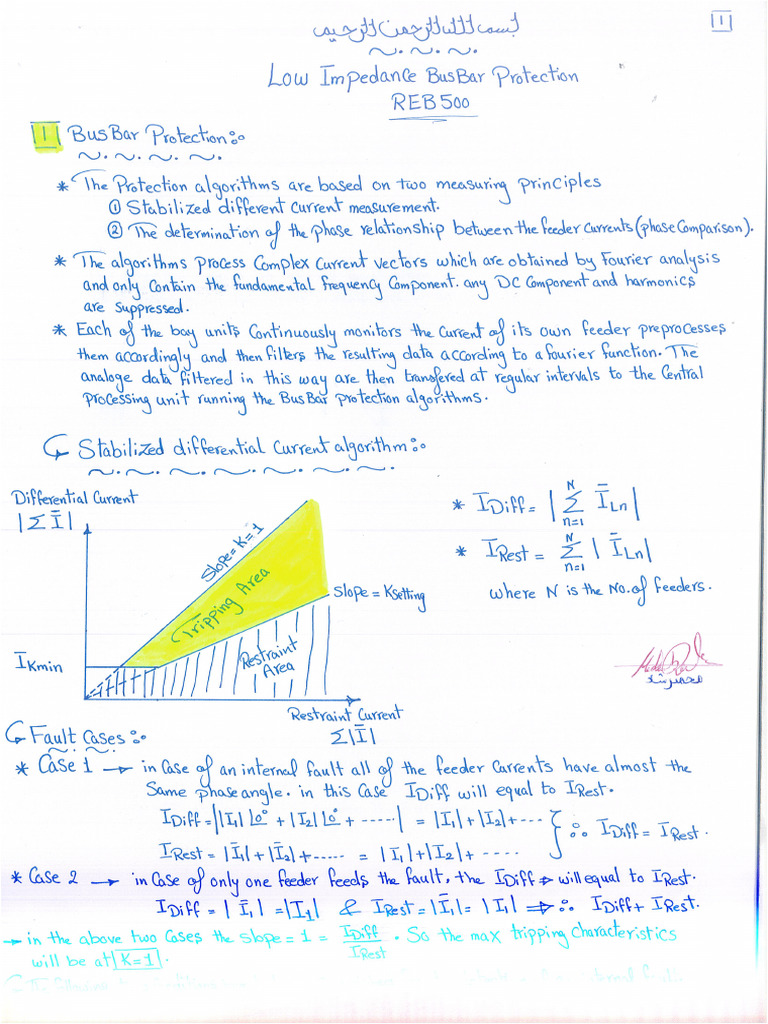 بسم الله الرحمن الرحيم
1
Low Impedance BusBar Protection
REB500
1 BusBar Protection:
* The Protection algorithms are based on two measuring principles
① Stabilized different current measurement.
② The determination of the phase relationship between the feeder currents (phase Comparison).
* The algorithms process Complex Current vectors which are obtained by Fourier analysis
and only contain the fundamental frequency Component. any DC Component and harmonics
are suppressed.
* Each of the bay units Continuously monitors the current of its own feeder preprocesses
them accordingly and then filters the resulting data according to a fourier function. The
analoge data filtered in this way are then transfered at regular intervals to the Central
Processing unit running the BusBar protection algorithms.
Stabilized differential Current algorithm:
Differential Current
|Σ Ī|
Slope = K = 1
Tripping Area
Slope = Ksetting
Restraint
Area
ĪKmin
Restraint Current
Σ|Ī|
* IDiff = | Σ(n=1 to N) ĪLn |
* IRest = Σ(n=1 to N) | ĪLn |
where N is the No. of feeders.
محمد رشاد
Fault Cases:
* Case 1 → in Case of an internal fault all of the feeder Currents have almost the
Same phase angle. in this Case IDiff will equal to IRest.
IDiff = ||I1|∠0° + |I2|∠0° + -----| = |I1| + |I2| + ---
IRest = |Ī1| + |Ī2| + ----- = |I1| + |I2| + ----
} ∴ IDiff = IRest.
* Case 2 → in Case of only one feeder feeds the fault, the IDiff ⇒ will equal to IRest.
IDiff = |Ī1| = |I1| & IRest = |Ī1| = |I1| ⇒ ∴ IDiff + IRest.
→ in the above two Cases the slope = 1 = IDiff / IRest . So the max tripping characteristics
will be at K=1.